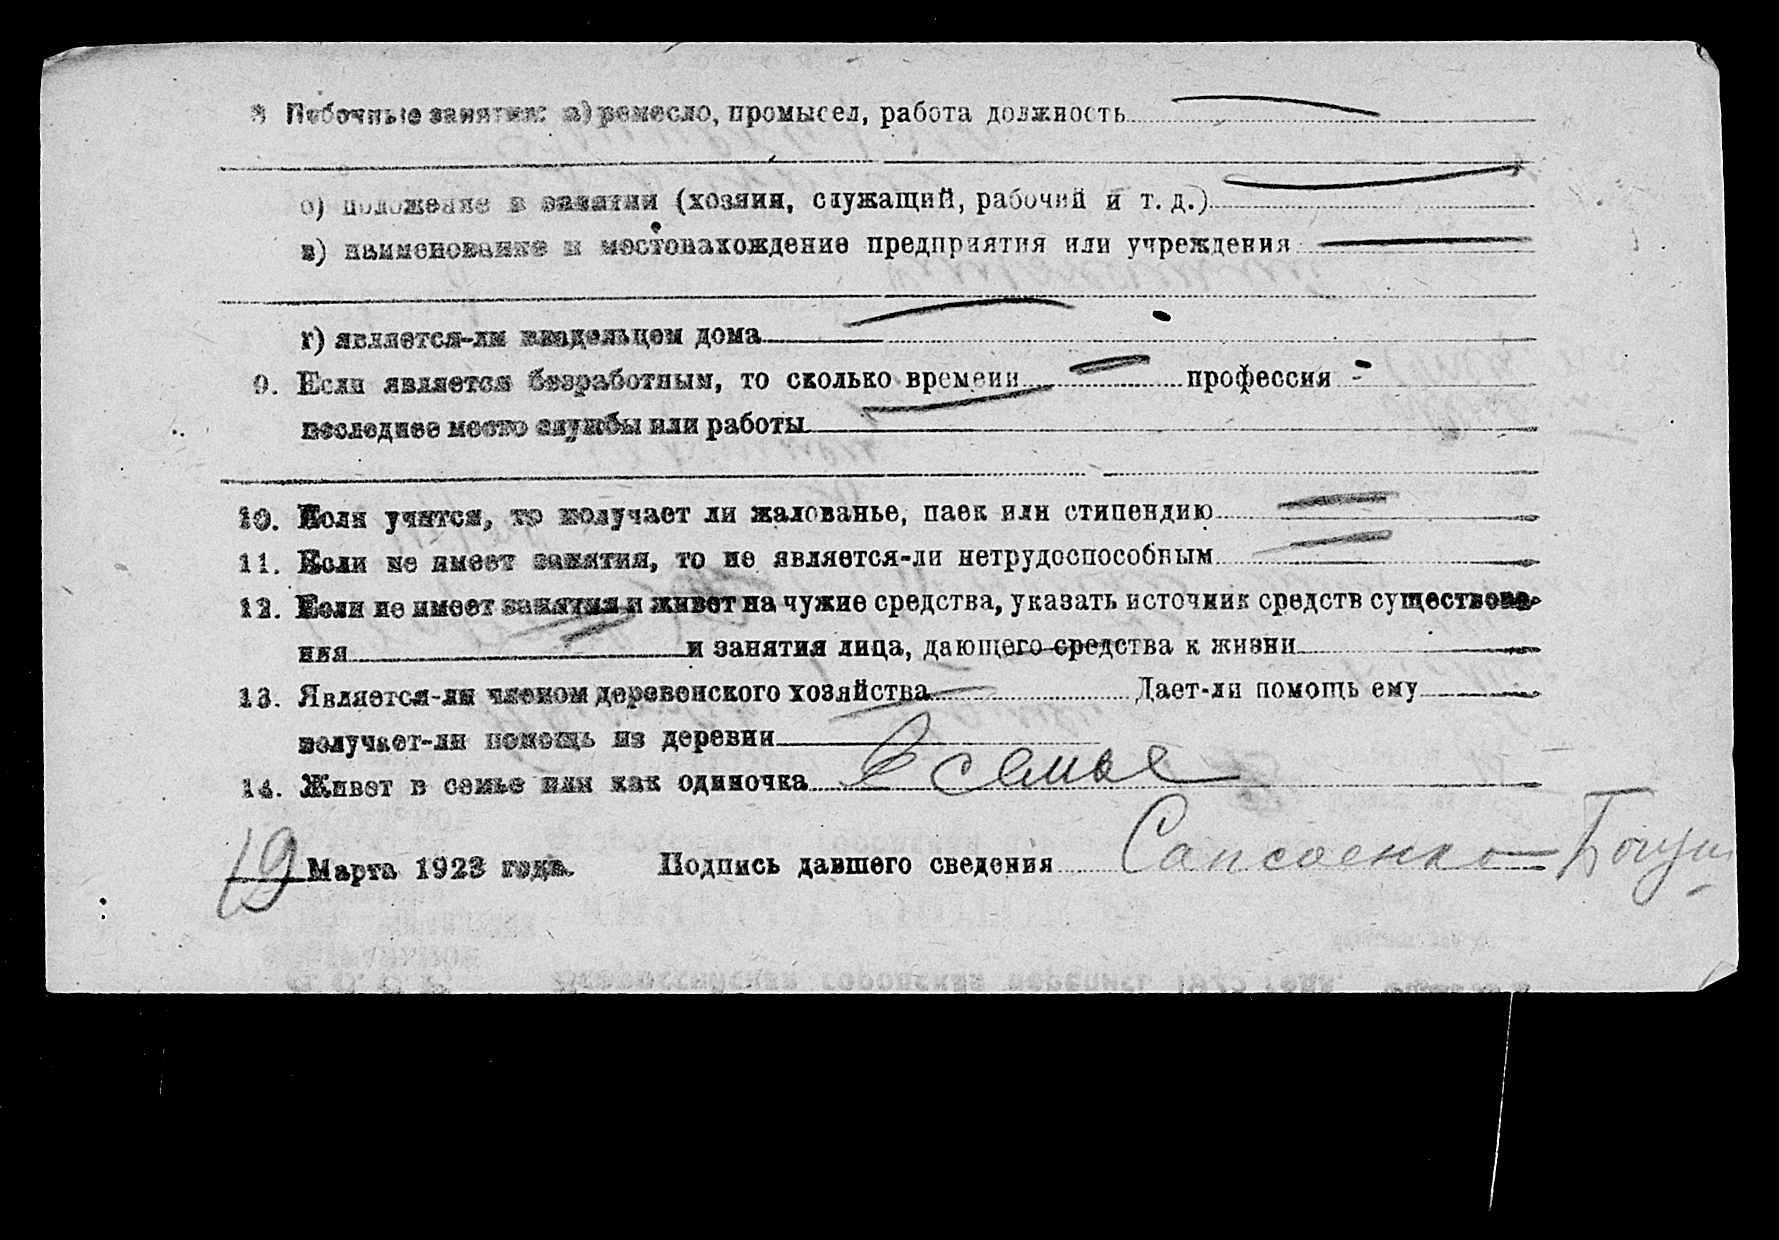 8 Побочные занятия: а) ремесло, промысел, работа должность
б) положение в занятии (хозяин, служащий, рабочий и т. д.)
в) наименование и местонахождение предприятия или учреждения
г) является-ли владельцем дома
9. Если является безработным, то сколько времени профессия -
последнее место службы или работы
10. Если учится, то получает ли жалованье, паек или стипендию
11. Если не имеет занятия, то не является-ли нетрудоспособным
12. Если не имеет занятия и живет на чужие средства, указать источник средств существова-
ния и занятия лица, дающего средства к жизни
13. Является-ли членом деревенского хозяйства Дает-ли помощь ему
получает-ли помощь из деревни
14. Живет в семье или как одиночка в семье
19 Марта 1923 года. Подпись давшего сведения